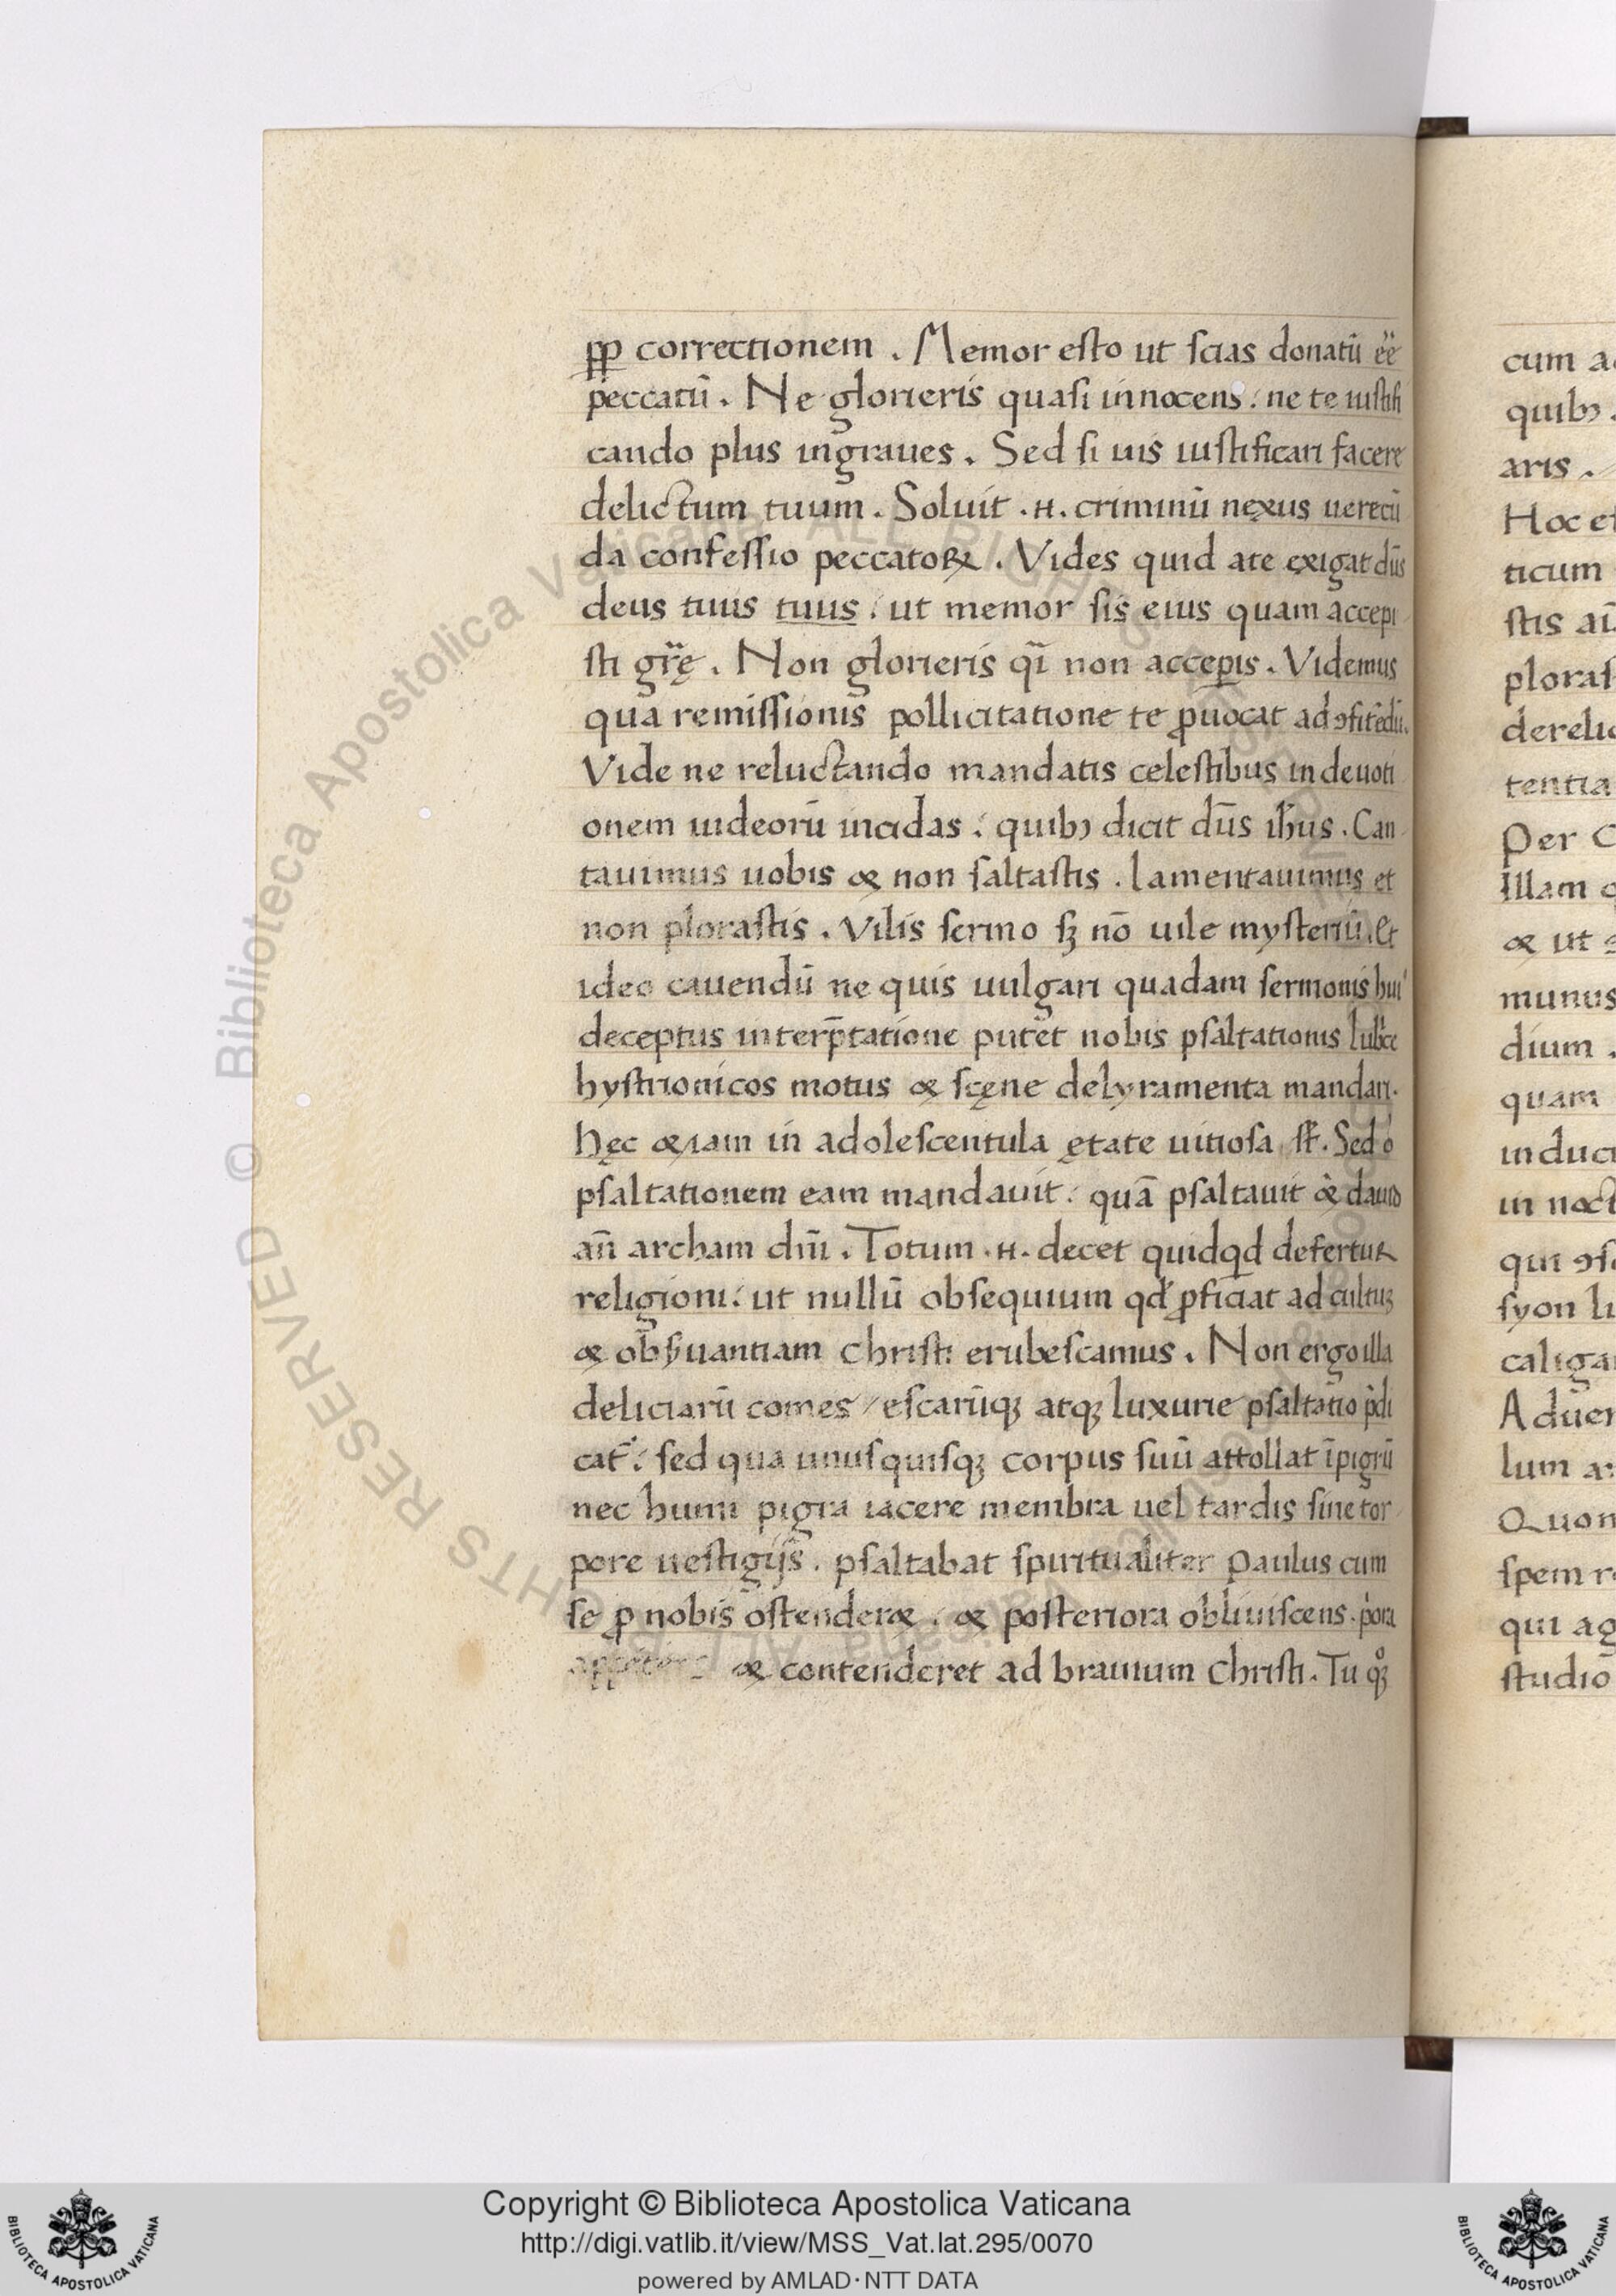 ꝓp correctionem . Memor esto ut scias donatū eē
peccatū . Ne glorieris quasi innocens : ne te iustifi
cando plus ingraues . Sed si uis iustificari facere
delictum tuum . Soluit .n. criminū nexus uerecū
da confessio peccatoꝝ . Vides quid a te exigat dn̄s
deus tuus tuus : ut memor sis eius quam accepi
sti gr̄ę . Non glorieris qī non acceꝑis . Videmus
qua remissionis pollicitatione te ꝓuocat ad ꝯfitēdū.
Vide ne reluctando mandatis celestibus indeuoti
onem iudeorū incidas : quibꝫ dicit dn̄s ih̄us . Can
tauimus uobis & non saltastis . lamentauimus et
non plorastis . Vilis sermo sꝫ nō uile mysteriū. Et
ideo cauendū ne quis uulgari quadam sermonis hui'
deceptus interp̄tatione putet nobis psaltationis lubꝛice
hystrionicos motus & scęne delyramenta mandari.
hęc &iam in adolescentula ętate uitiosa st̄. Sed o
psaltationem eam mandauit : quā psaltauit & dauid
an̄ archam dn̄i . Totum .n. decet quidqd defertur
religioni : ut nullū obsequium qd̄ ꝓficiat ad cultuꝫ
& obs̄uantiam Christi erubescamus . Non ergo illa
deliciarū comes / escarūqꝫ atqꝫ luxurie psaltatio p̄di
cat̄ : sed qua unusquisqꝫ corpus suū attollat īpigrū
nec humi pigra iacere membra uel tardis sine tor
pore uestigijs . psaltabat spiritualiter Paulus cum
se ꝓ nobis ostender& . & posteriora obliuiscens . p̄ora
appetens & contenderet ad brauium Christi . Tu qꝫ
cum a
quibꝫ
aris .
Hoc et
ticum
stis aū
ploras
derelic
tentia
Per C
Illam
& ut
munus
dium .
quam
induci
in noct
qui ꝯs
syon li
caliga
Aduer
lum a
Quon
spem r
qui ag
studio
© Biblioteca Apostolica Vaticana ALL RIGHTS RESERVED
Copyright © Biblioteca Apostolica Vaticana
http://digi.vatlib.it/view/MSS_Vat.lat.295/0070
powered by AMLAD·NTT DATA
BIBLIOTECA APOSTOLICA VATICANA
BIBLIOTECA APOSTOLICA VATICANA